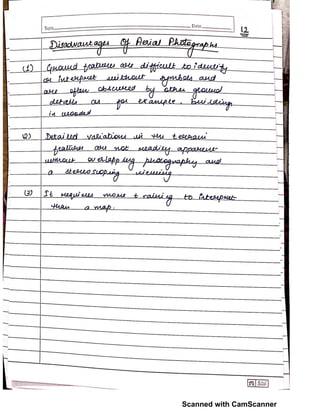 Date
12
Disadvantages Of Aerial Photographs
(1) Ground features are difficult to identify
or interpret without symbols and
are often obscured by other ground
details as for example, building
in wooded
(2) Detailed variations in the terrain
features are not readily apparent
without overlapping photography and
a stereoscoping viewing
(3) It requires more training to interpret
than a map.
Scanned with CamScanner